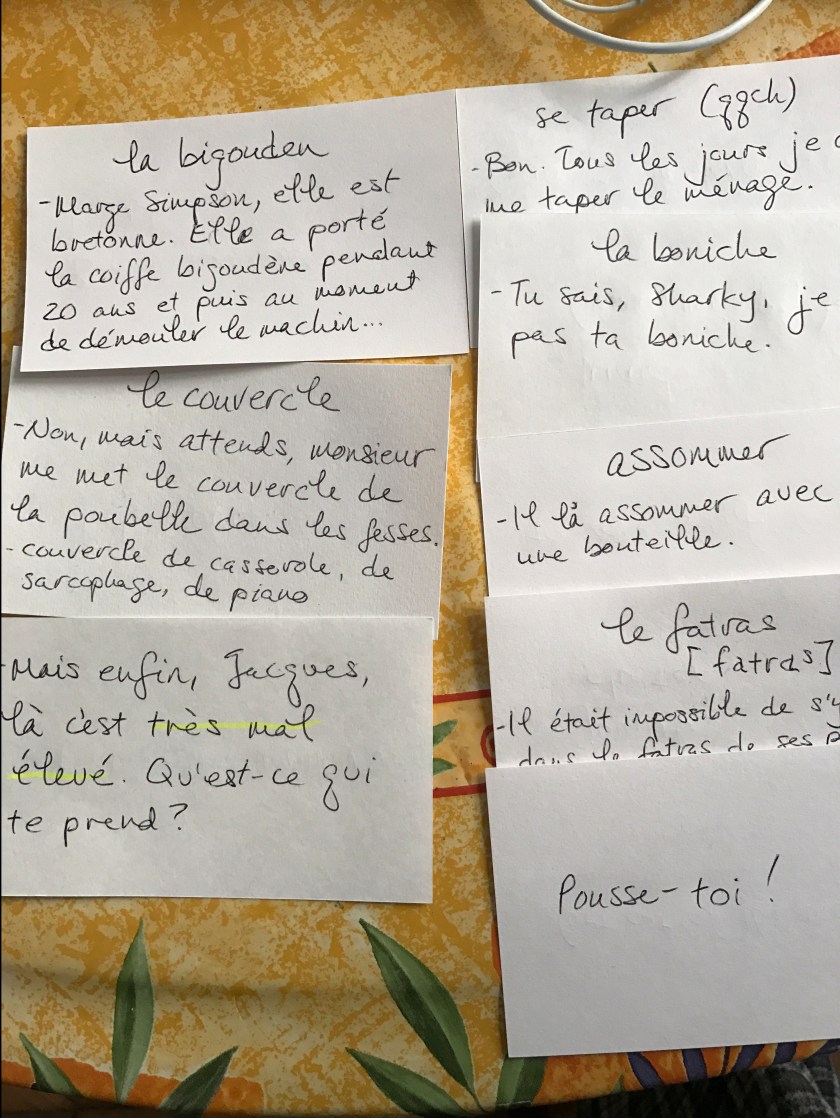 la bigouden
-Marge Simpson, elle est
bretonne. Elle a porté
la coiffe bigoudène pendant
20 ans et puis au moment
de démouler le machin...
le couvercle
-Non, mais attends, monsieur
me met le couvercle de
la poubelle dans les fesses.
-couvercle de casserole, de
sarcophage, de piano
-Mais enfin, Jacques,
là c'est très mal
élevé. Qu'est-ce qui
te prend?
se taper (qqch)
-Bon. Tous les jours je
me taper le ménage.
la boniche
-Tu sais, Sharky, je
pas ta boniche.
assommer
-Il l'a assommer avec
une bouteille.
le fatras
[fatras]
-Il était impossible de s'y
dans le fatras de ses
Pousse-toi!